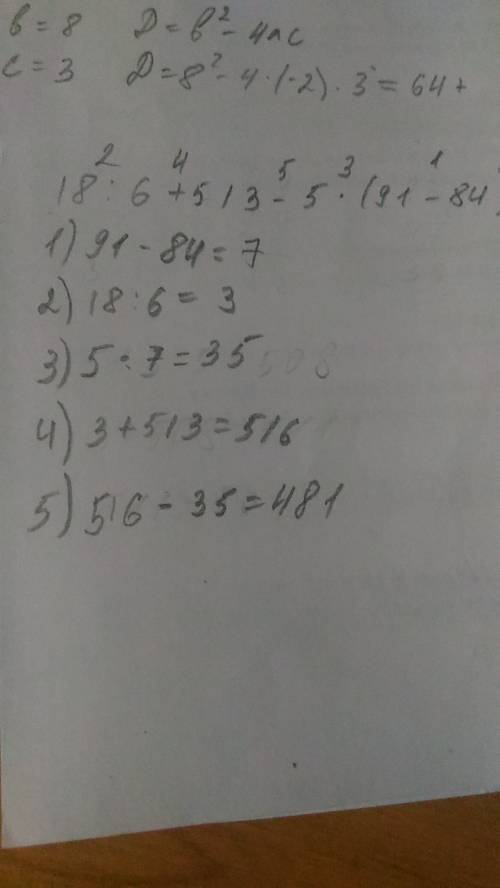 b = 8 D = b² - 4ac
c = 3 D = 8² - 4 · (-2) · 3 = 64 +
2 4 5 3 1
18 : 6 + 513 - 5 · (91 - 84
1) 91 - 84 = 7
2) 18 : 6 = 3
3) 5 · 7 = 35
4) 3 + 513 = 516
5) 516 - 35 = 481